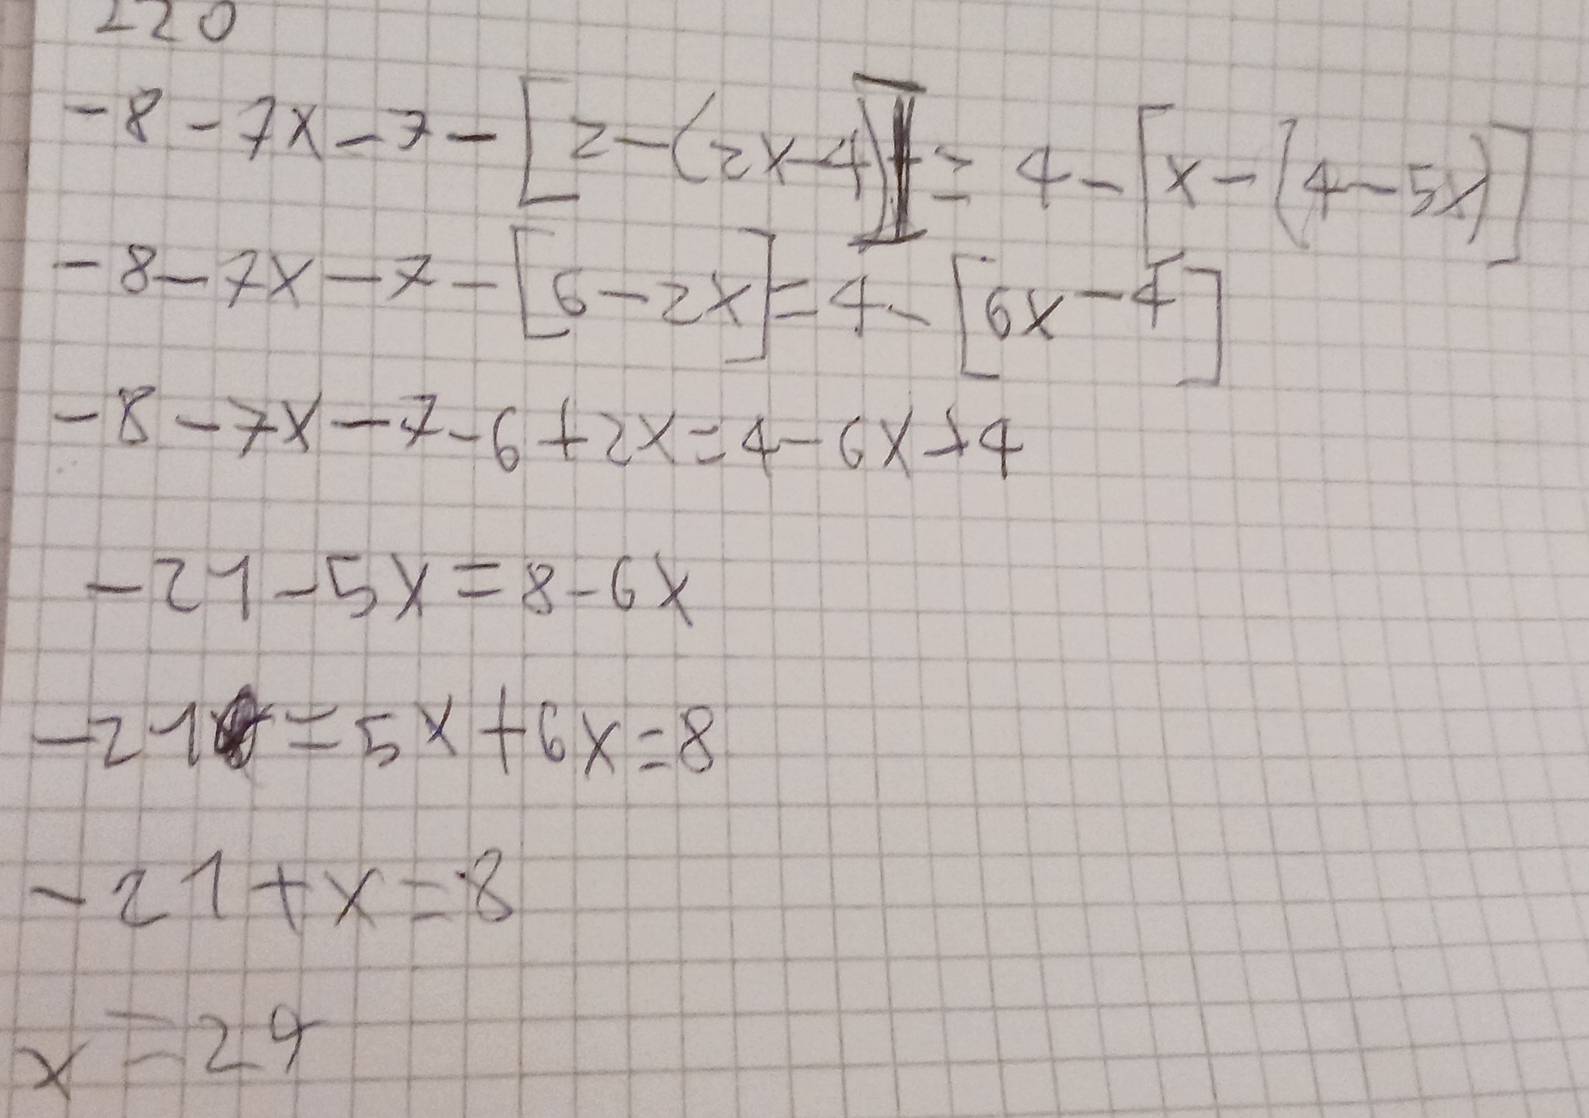 220
-8-7x-7-[2-(2x-4)]=4-[x-(4-5x)]
-8-7x-7-[6-2x]=4-[6x-4]
-8-7x-7-6+2x=4-6x+4
-21-5x=8-6x
-21=5x+6x=8
-21+x=8
x=29